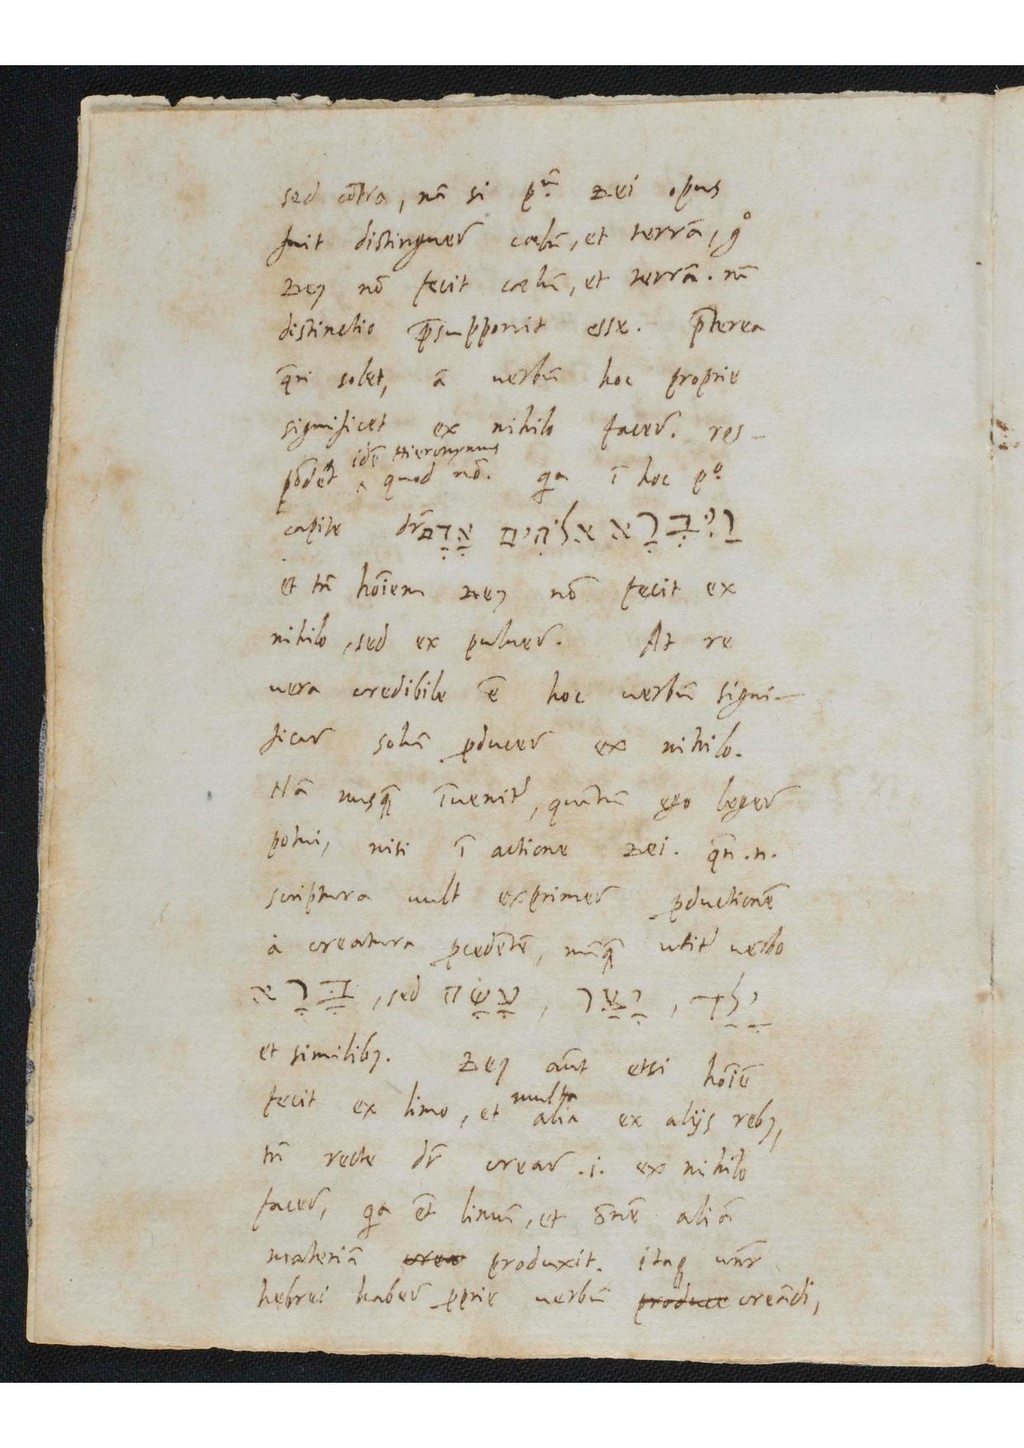 sed cōtra, nā si pᵐ Dei opus
fuit distinguer̄ cœlū, et terrā, gͦ
Deꝯ nō fecit cœlū, et terrā. nā
distinctio p̄supponit esse. p̄terea
q̄ri solet, ā uerbū hoc proprie
significet ex nihilo facer̄. res-
pōdet idē Hieronymus quod nō. qa ī hoc pͦ
capite dr̄ וַיִּבְרָא אלהים אָדָם
et tn̄ hōiem Deꝯ nō fecit ex
nihilo, sed ex puluer̄. At re
uera credibile ē hoc uerbū signi-
ficar̄ solū ꝓducer̄ ex nihilo.
Nā nusꝗ̄ īuenit᷑, quantū ego leger̄
potui, nisi ī actione Dei. qn̄.n.
scriptura uult exprimer̄ ꝓductionē
à creatura ꝓcedētē, nūꝗ̄ utit᷑ uerbo
בָּרָא, sed עָשָׂה, יָצַר, יָלַד
et similibꝯ. Deꝯ aūt etsi hōiē
fecit ex limo, et multa alia ex alijs rebꝯ,
tn̄ recte dr̄ crear̄ .i. ex nihilo
facer̄, qa ēt limū, et ōnē aliā
materiā crea produxit. itaꝗ unr̄
hebrei haber̄ ꝓprie uerbū produce creādi,